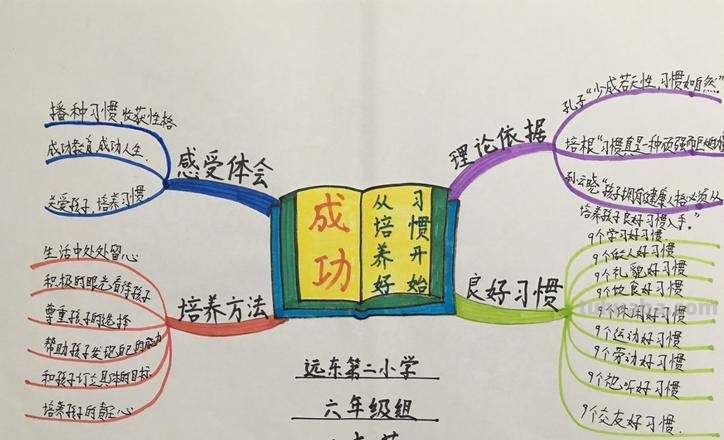 成功
从培养好
习惯开始
感受体会
播种习惯,收获性格
成功教育,成功人生.
关爱孩子,培养习惯
培养方法
生活中处处留心
积极的眼光看待孩子
尊重孩子的选择
帮助孩子发现自己的能力
和孩子订立具体的目标
培养孩子的责任心
理论依据
孔子“少成若天性,习惯如自然”
培根“习惯真是一种顽强而巨大的
孙云晓“孩子拥有健康人格必须从
培养孩子良好习惯入手。”
良好习惯
9个学习好习惯.
9个做人好习惯
9个礼貌好习惯
9个饮食好习惯
9个休闲好习惯
9个运动好习惯
9个劳动好习惯
9个聆听好习惯
9个交友好习惯.
远东第二小学
六年级组